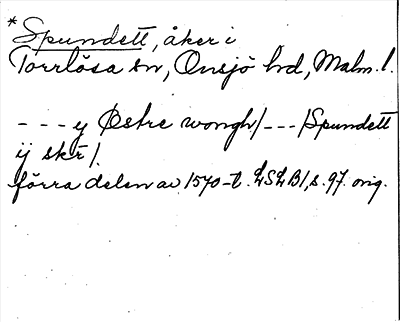 *Spundett, åker i
Torrlösa sn, Onsjö hd, Malm. l.
- - - y Østre wongh/ - - - /Spundett
ij skr /.
förra delen av 1570-t. LSLB1, s. 97. orig.